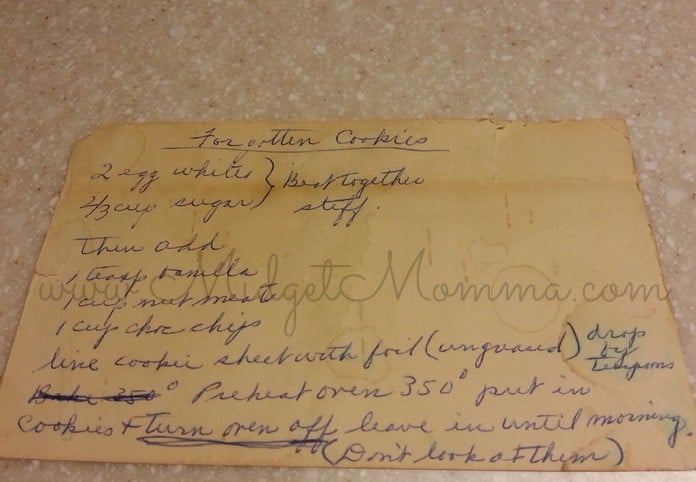 Forgotten Cookies
2 egg whites } Beat together
2/3 cup sugar } stiff.
then add
1 teasp vanilla
1 cup nut meats
1 cup choc chips
line cookie sheet with foil (ungreased) drop by teaspoons
Bake 350° Preheat oven 350° put in
Cookies + turn oven off leave in until morning.
(Don't look at them)
www.MidgetMomma.com